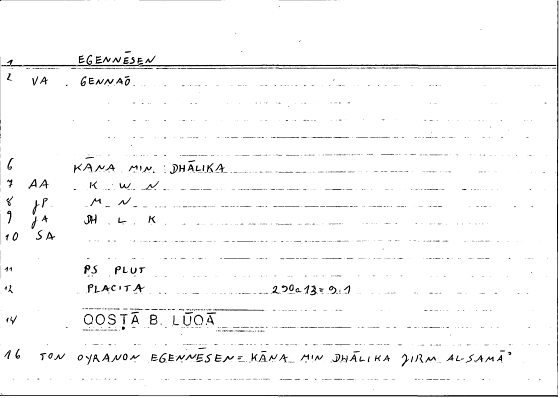 1 EGENNĒSEN
2 VA GENNAŌ
6 KĀNA MIN DHĀLIKA
7 AA K W N
8 JP M N
9 JA DH L K
10 SA
11 PS PLUT
12 PLACITA 290a13 = 9.1
14 QOSṬĀ B. LŪQĀ
16 TON OYRANON EGENNĒSEN = KĀNA MIN DHĀLIKA JIRM AL-SAMĀʾ